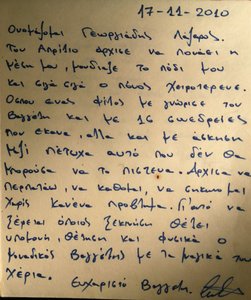 17-11-2010
Ονομάζομαι Γεωργιάδης Λάζαρος.
Τον Απρίλιο άρχισε να πονάει η
μέση μου, μούδιαζε το πόδι μου
και σιγά σιγά ο πόνος χειροτέρευε.
Όσπου ένας φίλος με γνώρισε τον
Βαγγέλη και με 16 συνεδρείες
που έκανα, αλλά και με άσκηση
μαζί πέτυχα αυτό που δεν θα
μπορούσα να το πιστέψω. Άρχισα να
περπατάω, να κάθομαι, να σηκώνομαι
χωρίς κανένα πρόβλημα. Γι'αυτό να
ξέρετε όποιος ξεκινήσει θέλει
υπομονή, θέληση και φυσικά ο
μοναδικός Βαγγέλης με τα μαγικά του
χέρια.
Ευχαριστώ Βαγγέλη.